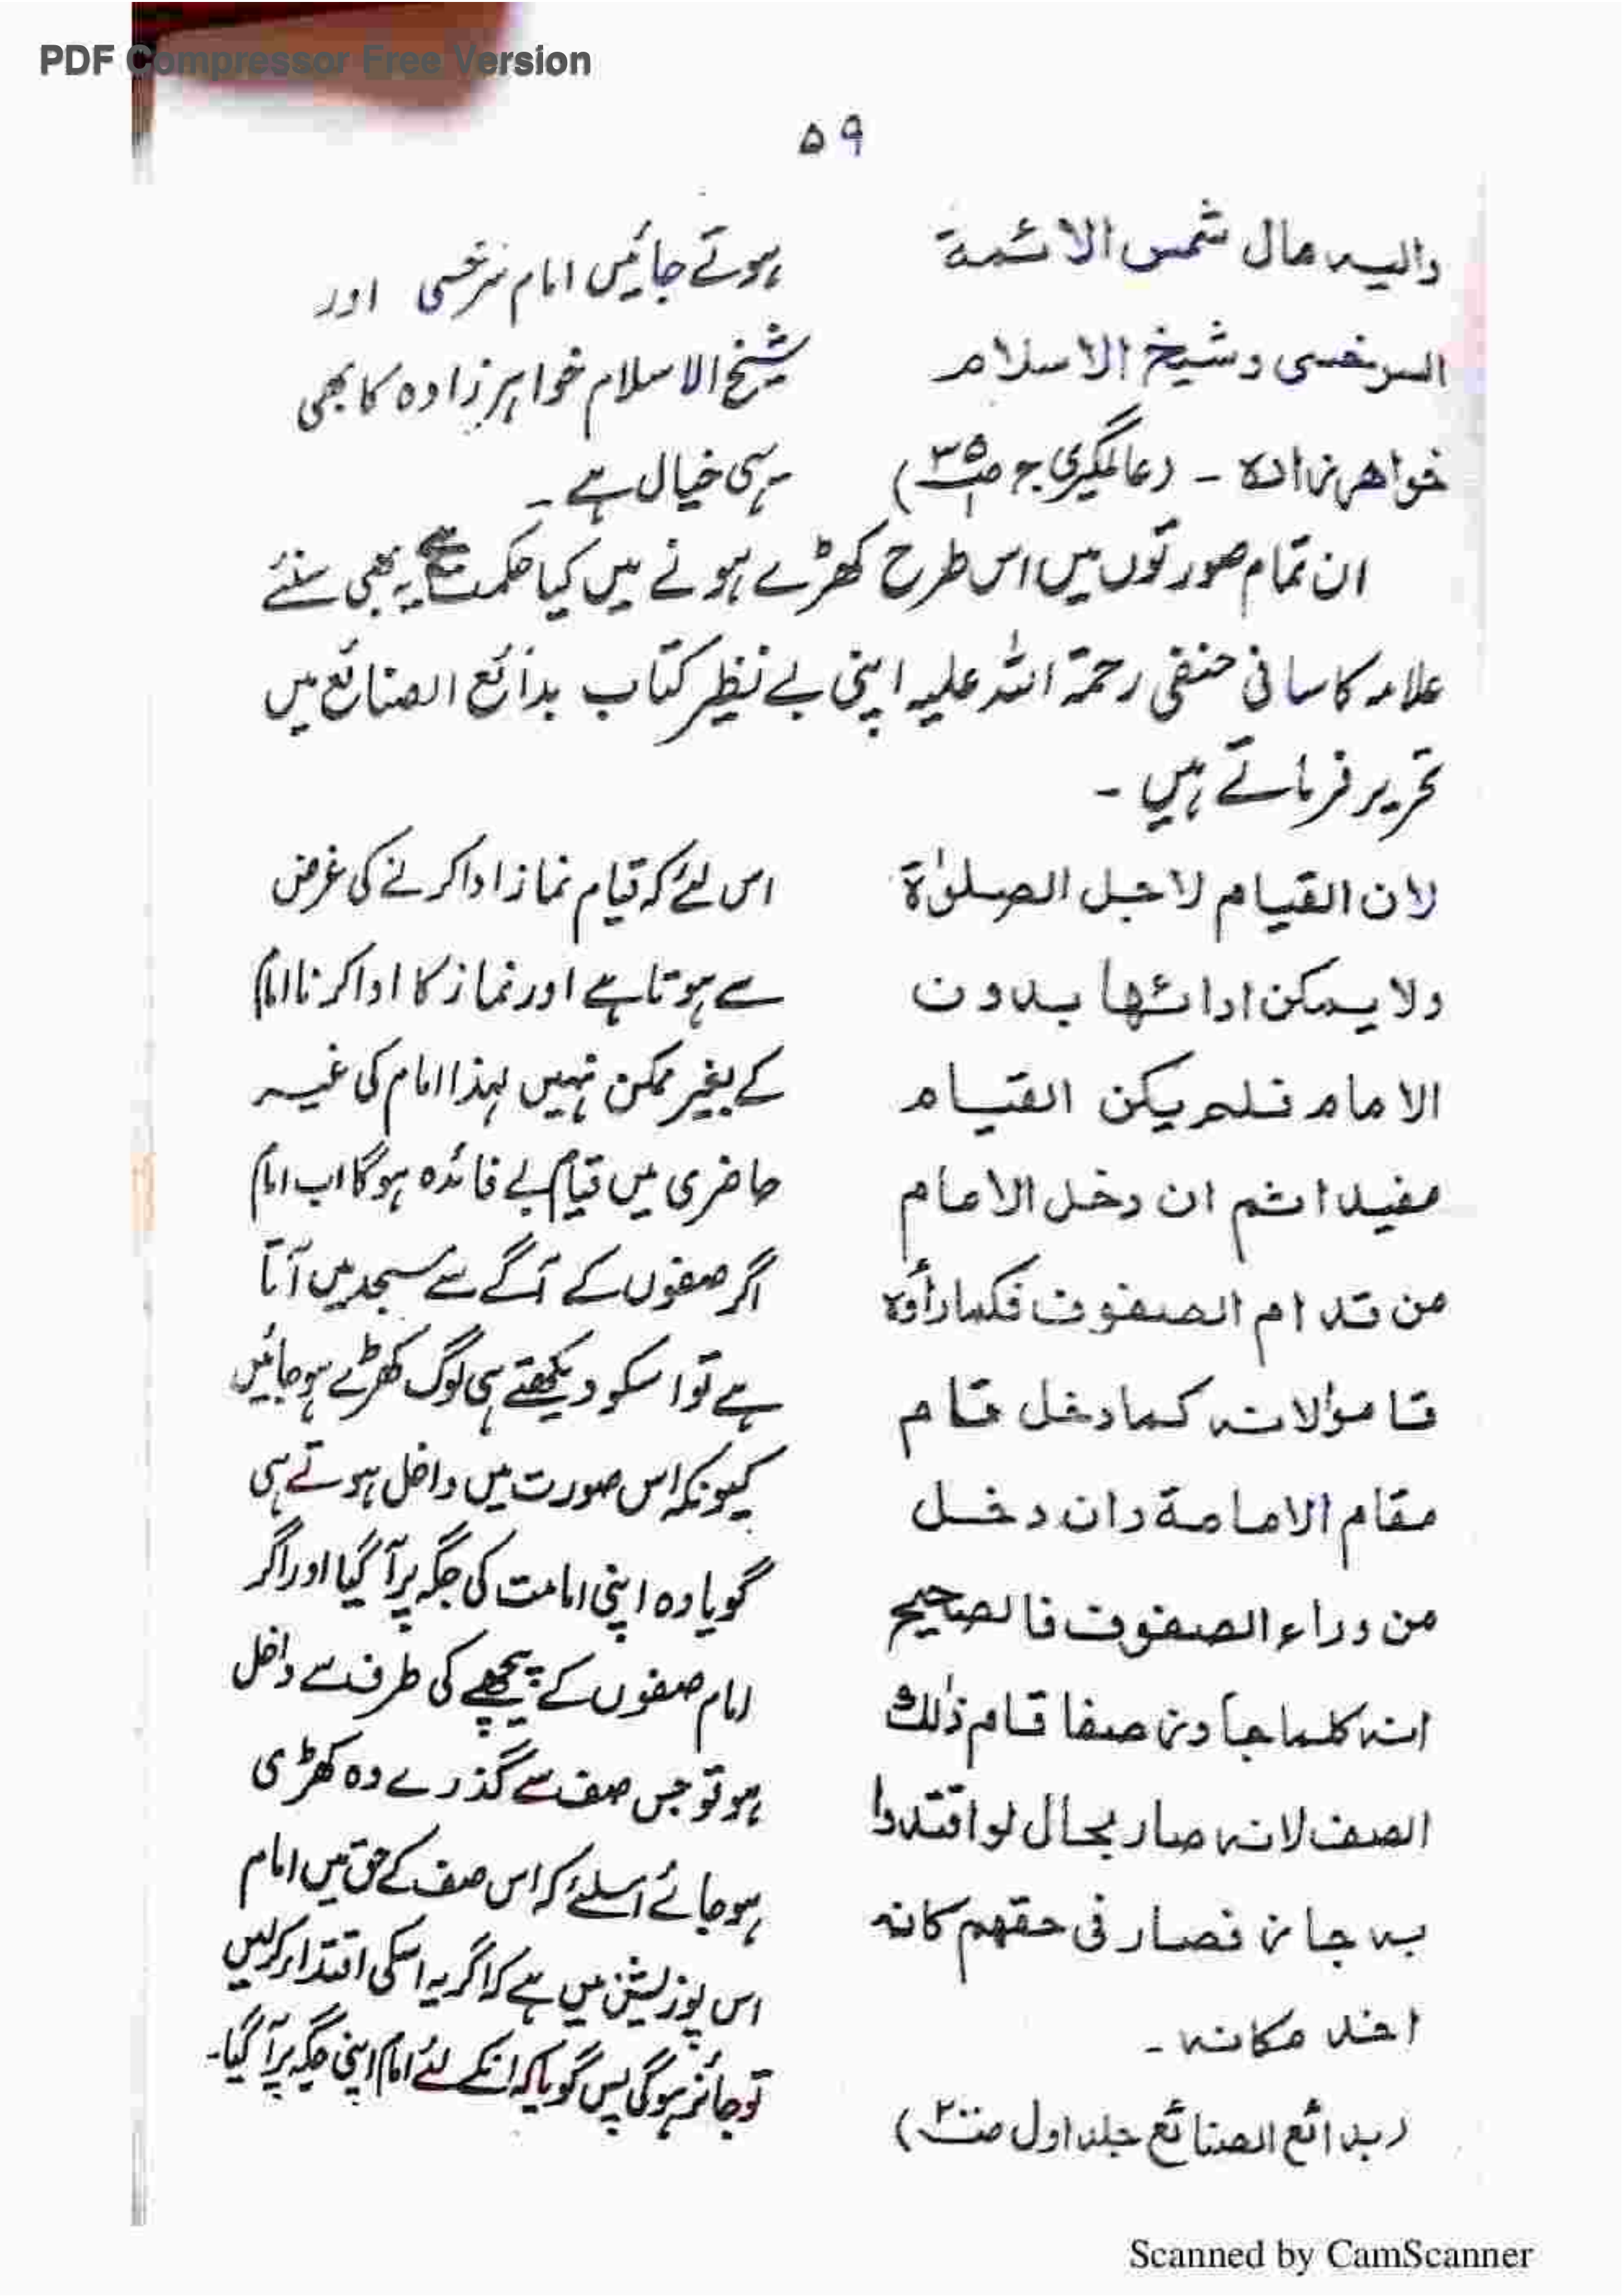 PDF Compressor Free Version
۵۹
والیہ مال شمس الائمۃ
السرخسی وشیخ الاسلام
خواھرزادہ ۔ (عالمگیری ج۱ ص۳۵)
ہوتے جائیں امام سرخسی اور
شیخ الاسلام خواہرزادہ کا بھی
یہی خیال ہے ۔
ان تمام صورتوں میں اس طرح کھڑے ہونے میں کیا حکمت ہے یہ بھی سنئے
علامہ کاسانی حنفی رحمۃ اللہ علیہ اپنی بے نظیر کتاب بدائع الصنائع میں
تحریر فرماتے ہیں ۔
لان القیام لاجل الصلوٰۃ
ولا یمکن ادائھا بدون
الامام فلم یکن القیام
مفیدا ثم ان دخل الامام
من قدام الصفوف فکما رأوہ
قاموا لانہ کما دخل قام
مقام الامامۃ وان دخل
من وراء الصفوف فالصحیح
انہ کلما جاوز صفا قام ذٰلک
الصف لانہ صار بحال لو اقتدوا
بہ جاز فصار فی حقھم کانہ
اخذ مکانہ ۔
(بدائع الصنائع جلد اول ص۲۰۰)
اس لئے کہ قیام نماز ادا کرنے کی غرض
سے ہوتا ہے اور نماز کا ادا کرنا امام
کے بغیر ممکن نہیں لہذا امام کی غیر
حاضری میں قیام بے فائدہ ہوگا اب امام
اگر صفوں کے آگے سے مسجد میں آتا
ہے تو اسکو دیکھتے ہی لوگ کھڑے ہوجائیں
کیونکہ اس صورت میں داخل ہوتے ہی
گویا وہ اپنی امامت کی جگہ پر آگیا اور اگر
امام صفوں کے پیچھے کی طرف سے داخل
ہو تو جس صف سے گذرے وہ کھڑی
ہوجائے اسلئے کہ اس صف کے حق میں امام
اس پوزیشن میں ہے کہ اگر یہ اسکی اقتدا کرلیں
تو جائز ہوگی پس گویا کہ انکے لئے امام اپنی جگہ پر آگیا۔
Scanned by CamScanner